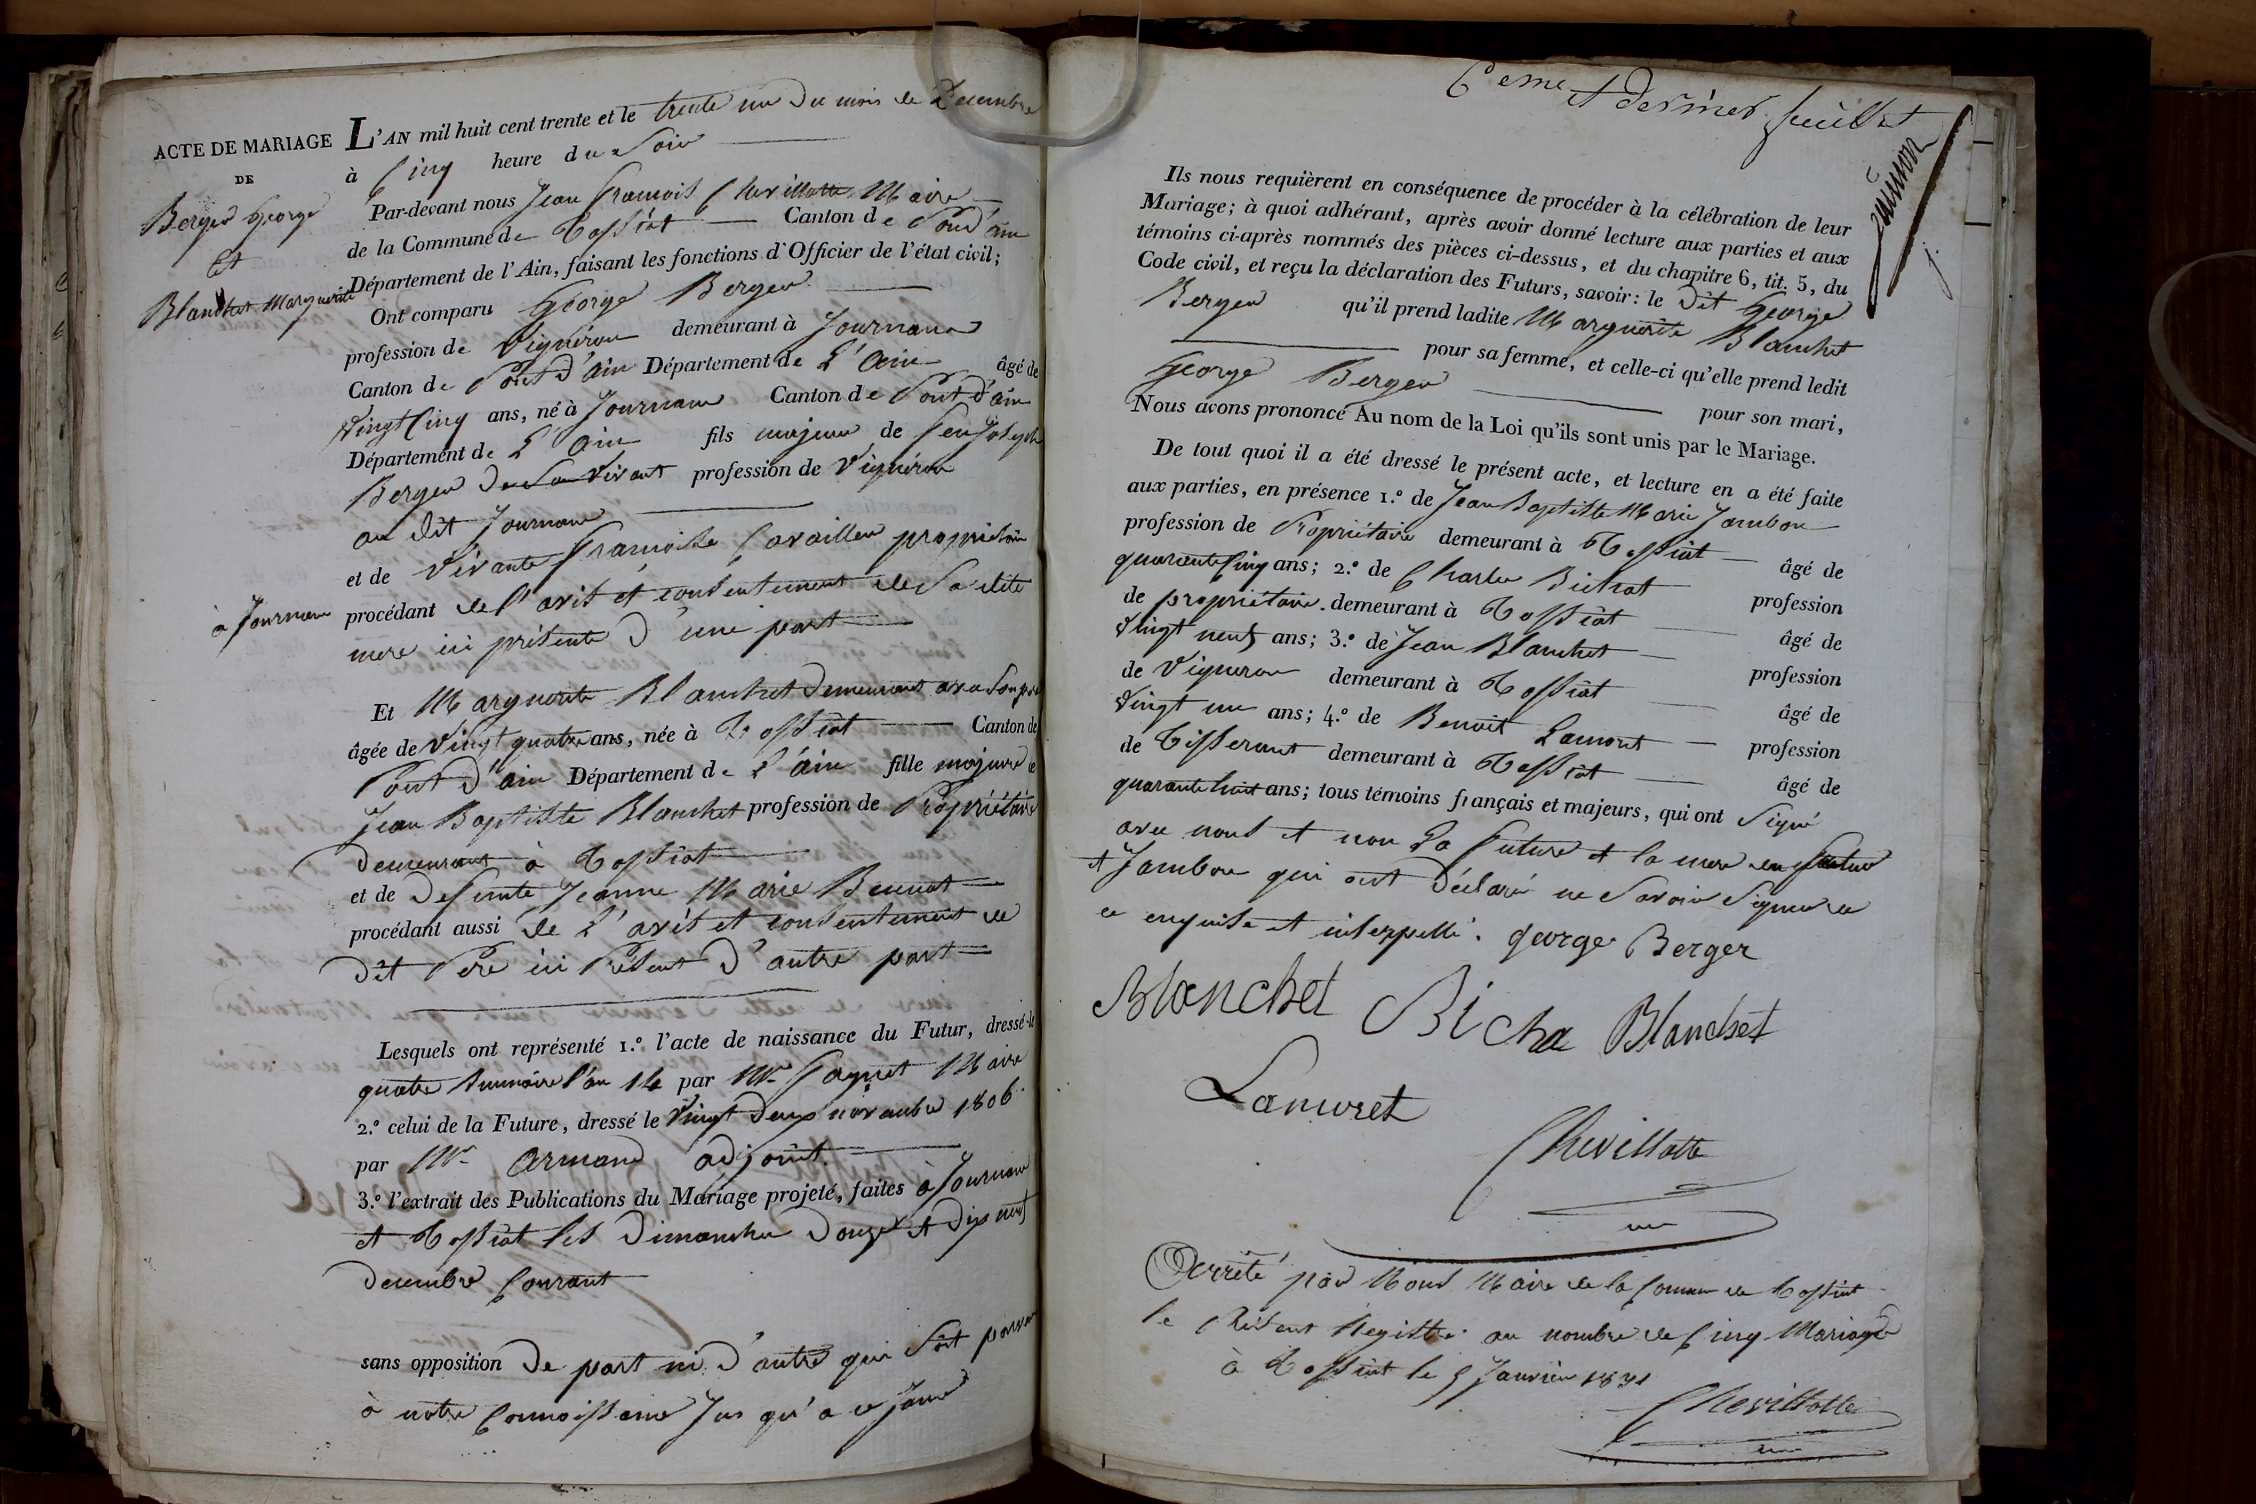 ACTE DE MARIAGE
DE
Berger George
et
Blanchet Marguerite
L'AN mil huit cent trente et le trente un du mois de Decembre
à Cinq heure du Soir
Par-devant nous Jean François Chevillotte Maire
de la Commune de Tossiat Canton de Pond'ain
Département de l'Ain, faisant les fonctions d'Officier de l'état civil;
Ont comparu George Berger
profession de Vigneron demeurant à Journans
Canton de Pont d'ain Département de L'Ain âgé de
Vingt Cinq ans, né à Journans Canton de Pont d'ain
Département de L'Ain fils majeur de feu Joseph
Berger de Son Vivant profession de Vigneron
au dit Journans
et de Vivante Françoise Cavaillen propriétaire
à Journans
procédant de l'avis et consentement de Sa dite
mere ici présente d'une part
Et Marguerite Blanchet demeurant avec Son père
âgée de Vingt quatre ans, née à Tossiat Canton de
Pont d'ain Département de L'ain fille majeure de
Jean Baptiste Blanchet profession de Propriétaire
demeurant à Tossiat
et de defunte Jeanne Marie Bennot
procédant aussi de L'avis et consentement de
dit Pere ici Présent d'autre part
Lesquels ont représenté 1.º l'acte de naissance du Futur, dressé le
quatre brumaire l'an 14 par Mr. Maire
2.º celui de la Future, dressé le Vingt deux novembre 1806
par Mr. Armand adjoint
3.º l'extrait des Publications du Mariage projeté, faites à Journans
et Tossiat les Dimanches Douze et Dix neuf
decembre Courant
sans opposition de part ni d'autre qui soit parvenu
à notre Connoissance Jus qu'a ce Jour
6eme et dernier feuillet
Ils nous requièrent en conséquence de procéder à la célébration de leur
Mariage; à quoi adhérant, après avoir donné lecture aux parties et aux
témoins ci-après nommés des pièces ci-dessus, et du chapitre 6, tit. 5, du
Code civil, et reçu la déclaration des Futurs, savoir: le Dit George
Berger qu'il prend ladite Marguerite Blanchet
pour sa femme, et celle-ci qu'elle prend ledit
George Berger pour son mari,
Nous avons prononcé Au nom de la Loi qu'ils sont unis par le Mariage.
De tout quoi il a été dressé le présent acte, et lecture en a été faite
aux parties, en présence 1.º de Jean Baptiste Marie Jambon
profession de Propriétaire demeurant à Tossiat âgé de
quarante Cinq ans; 2.º de Charles Bichat profession
de propriétaire demeurant à Tossiat âgé de
Vingt neuf ans; 3.º de Jean Blanchet profession
de Vigneron demeurant à Tossiat âgé de
Vingt un ans; 4.º de Benoit Lamoret profession
de Tisserant demeurant à Tossiat âgé de
quarante huit ans; tous témoins français et majeurs, qui ont Signé
avec nous et non La future et la mere du futur
et Jambon qui ont déclaré ne Savoir Signer de
ce enquis et interpellé. george Berger
Blanchet Bicha Blanchet
Lamoret
Chevillotte
Arrêté par Nous Maire de la Commune de Tossiat
le Présent Registre au nombre de Cinq Mariages
à Tossiat le Janvier 1831
Chevillotte